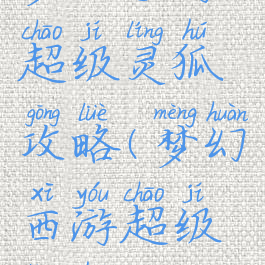 chāo jí líng hú
超级灵狐
gōng lüè mèng huàn
攻略(梦幻
xī yóu chāo jí
西游超级